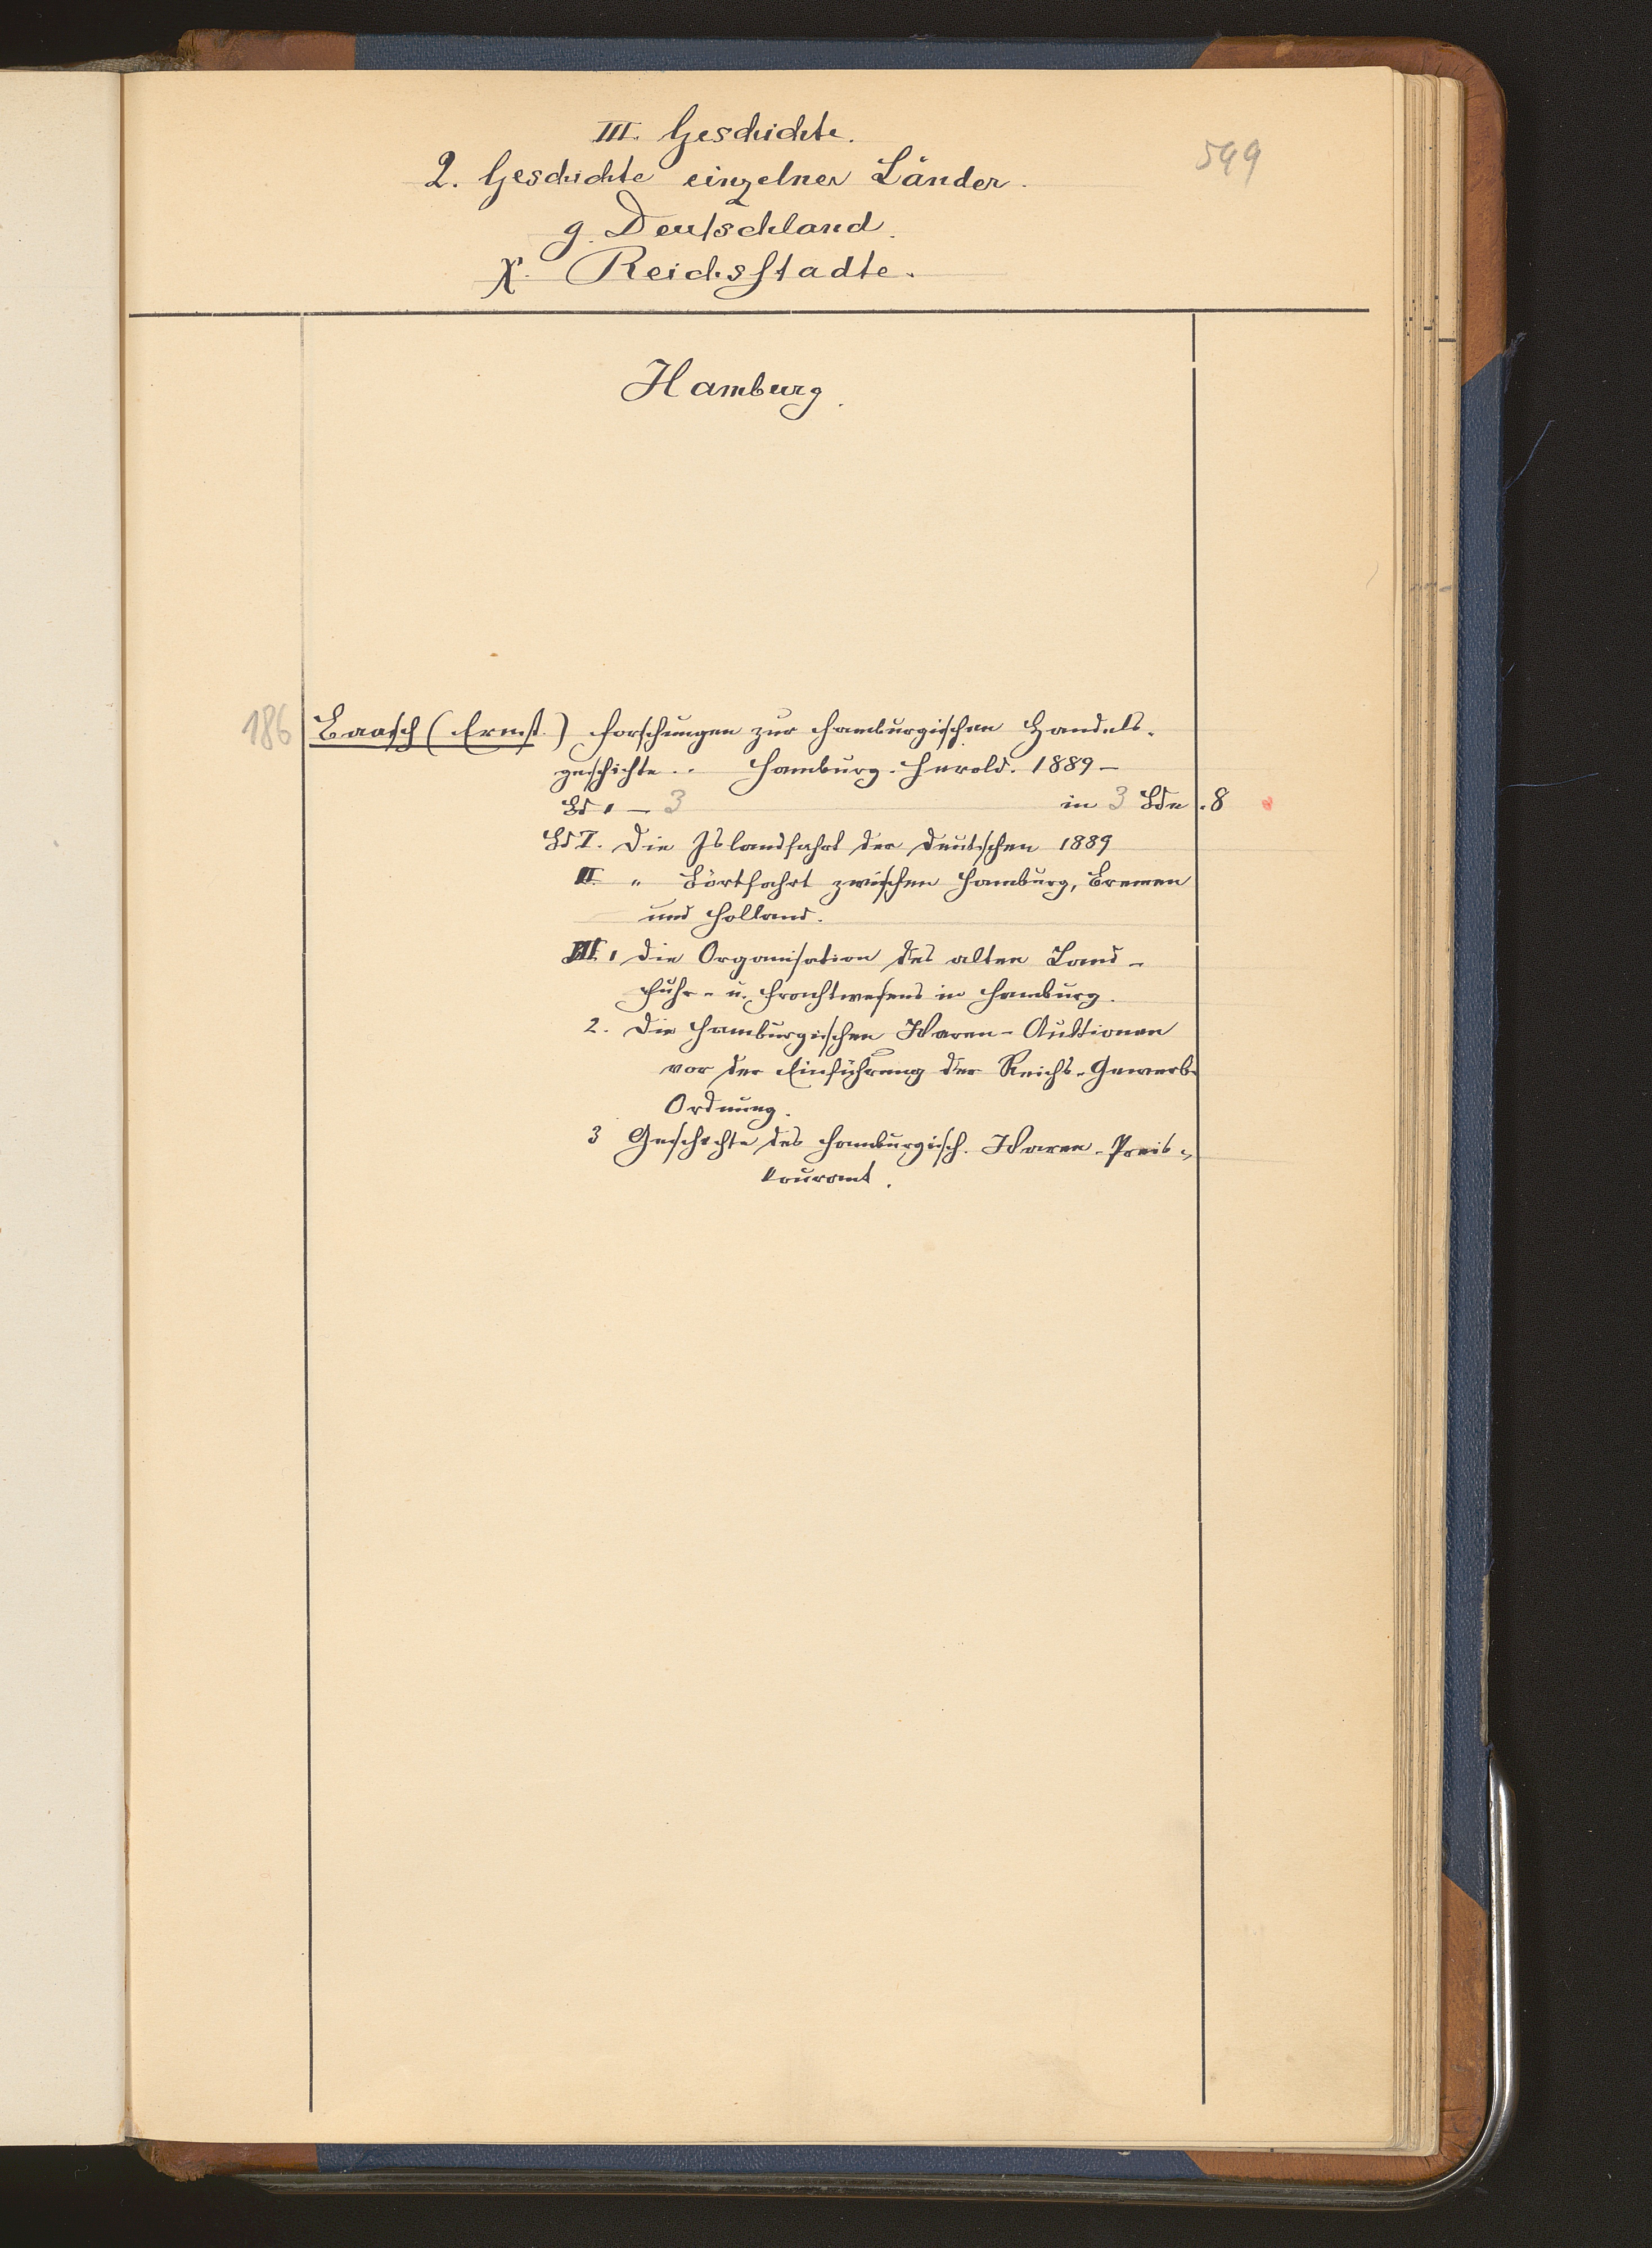 599
III. Geschichte.
2. Geschichte einzelner Länder.
g. Deutschland.
χ. Reichsstädte.
Hamburg.
186 Baasch (Ernst.) Forschungen zur hamburgischen Handels-
geschichte.. Hamburg. Herold. 1889 –
Bd 1 – 3 in 3 Bdn. 8
Bd I. Die Islandfahrt der Deutschen 1889
II. " Börtfahrt zwischen Hamburg, Bremen
und Holland.
III. 1 Die Organisation des alten Land-
Fuhr- u. Frachtwesens in Hamburg.
2. Die Hamburgischen Waren-Auktionen
vor der Einführung der Reichs-Gewerb-
Ordnung.
3 Geschichte des hamburgisch. Waren-Preis-
kourant.